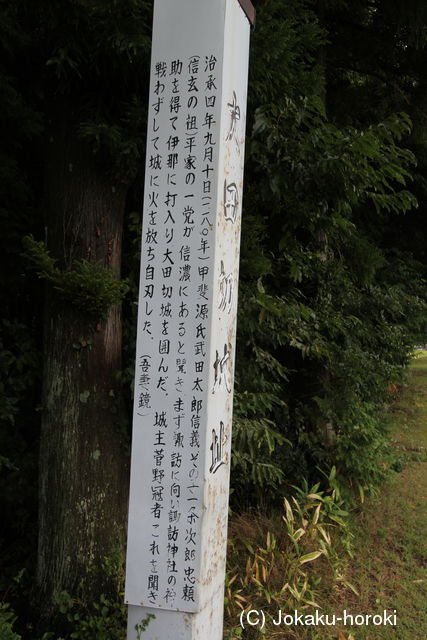 治承四年九月十日(一一八〇年)甲斐源氏武田太郎信義その子一条次郎忠頼
(信玄の祖)平家の一党が信濃にあると聞きまず諏訪に向い諏訪神社の
助を得て伊那に打入り大田切城を囲んだ。城主菅野冠者これを聞き
戦わずして城に火を放ち自刃した。(吾妻鏡)
大田切城址
(C) Jokaku-horoki